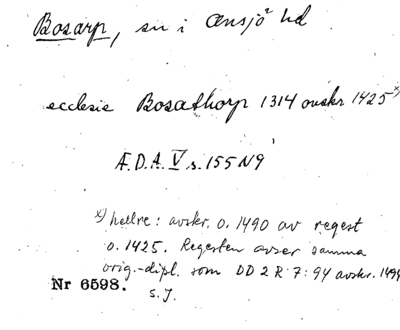 Bosarp, sn i Onsjö hd
ecclesie Bosathorp 1314 avskr 1425 x)
Æ.D.A. V s. 155 N9
x) hellre: avskr. o. 1490 av regest
o. 1425. Regesten avser samma
orig.-dipl. som DD 2 R 7: 94 avskr. 1494
Nr 6598.
S. J.